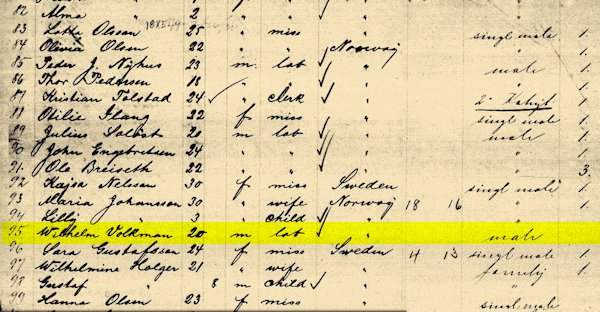 82 Alma " 2 " "
83 Lotta Olsson 25 " miss singl male 1.
84 Olivia Olsen 22 " " Norway " 1.
85 Peder J. Nyhus 23 m. lab " male 1.
86 Thor Pedersen 18 " " " " 1.
87 Kristian Tolstad 24 " Clerk " 1.
88 Otilie 22 f miss " singl male 1.
89 Julius 20 m lab " male 1.
90 John Engebretsen 24 " " " " 1.
91. Ole Breiseth 22 " " " " 3.
92 Kajsa Nelsson 30 f miss Sweden singl male 1.
93 Maria Johansson 30 " wife Norway 18 16 " 1.
94 Lilly " 3 " child "
95 Wilhelm Volkman 20 m lab " male 1.
96 Sara Gustafsson 24 f miss Sweden 4 13 singl male 1.
97 Wilhelmina Holger 21 " wife " family 1.
98 Gustaf " 8 m child "
99 Hanna Olsen 23 f miss " singl male